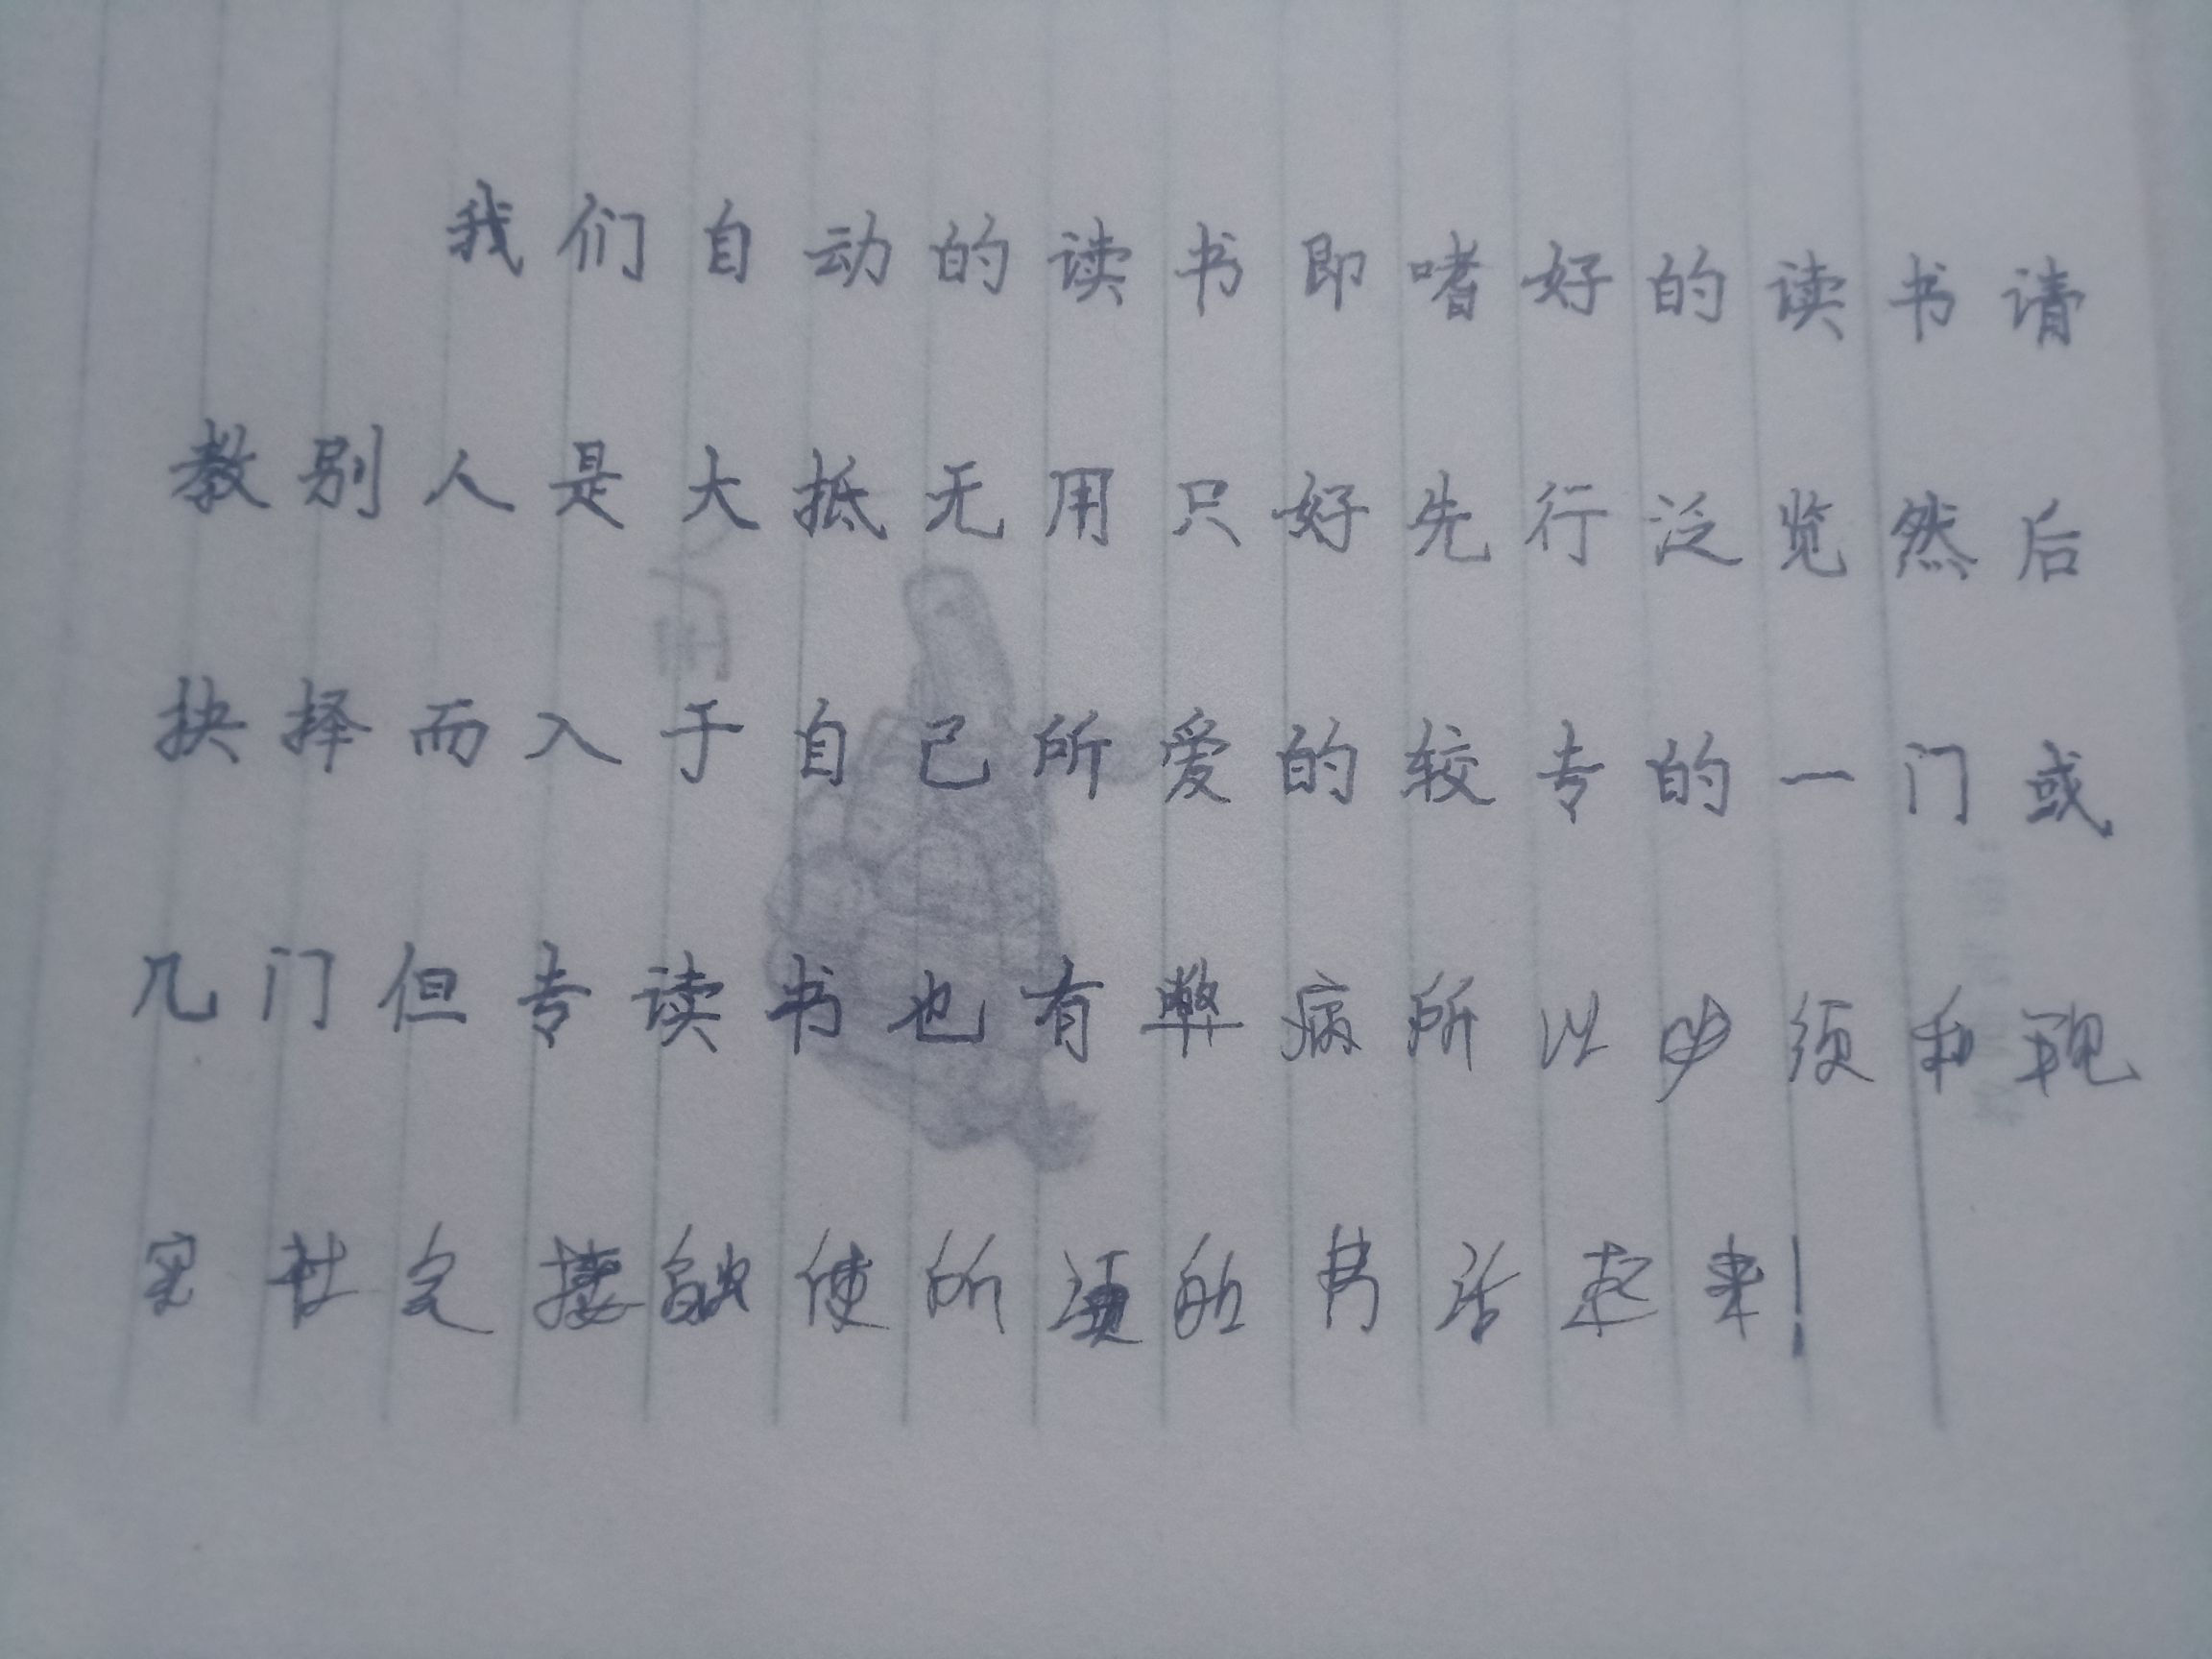 我们自动的读书即嗜好的读书请
教别人是大抵无用只好先行泛览然后
抉择而入于自己所爱的较专的一门或
几门但专读书也有弊病所以必须和现
实社会接触使所读的书活起来！